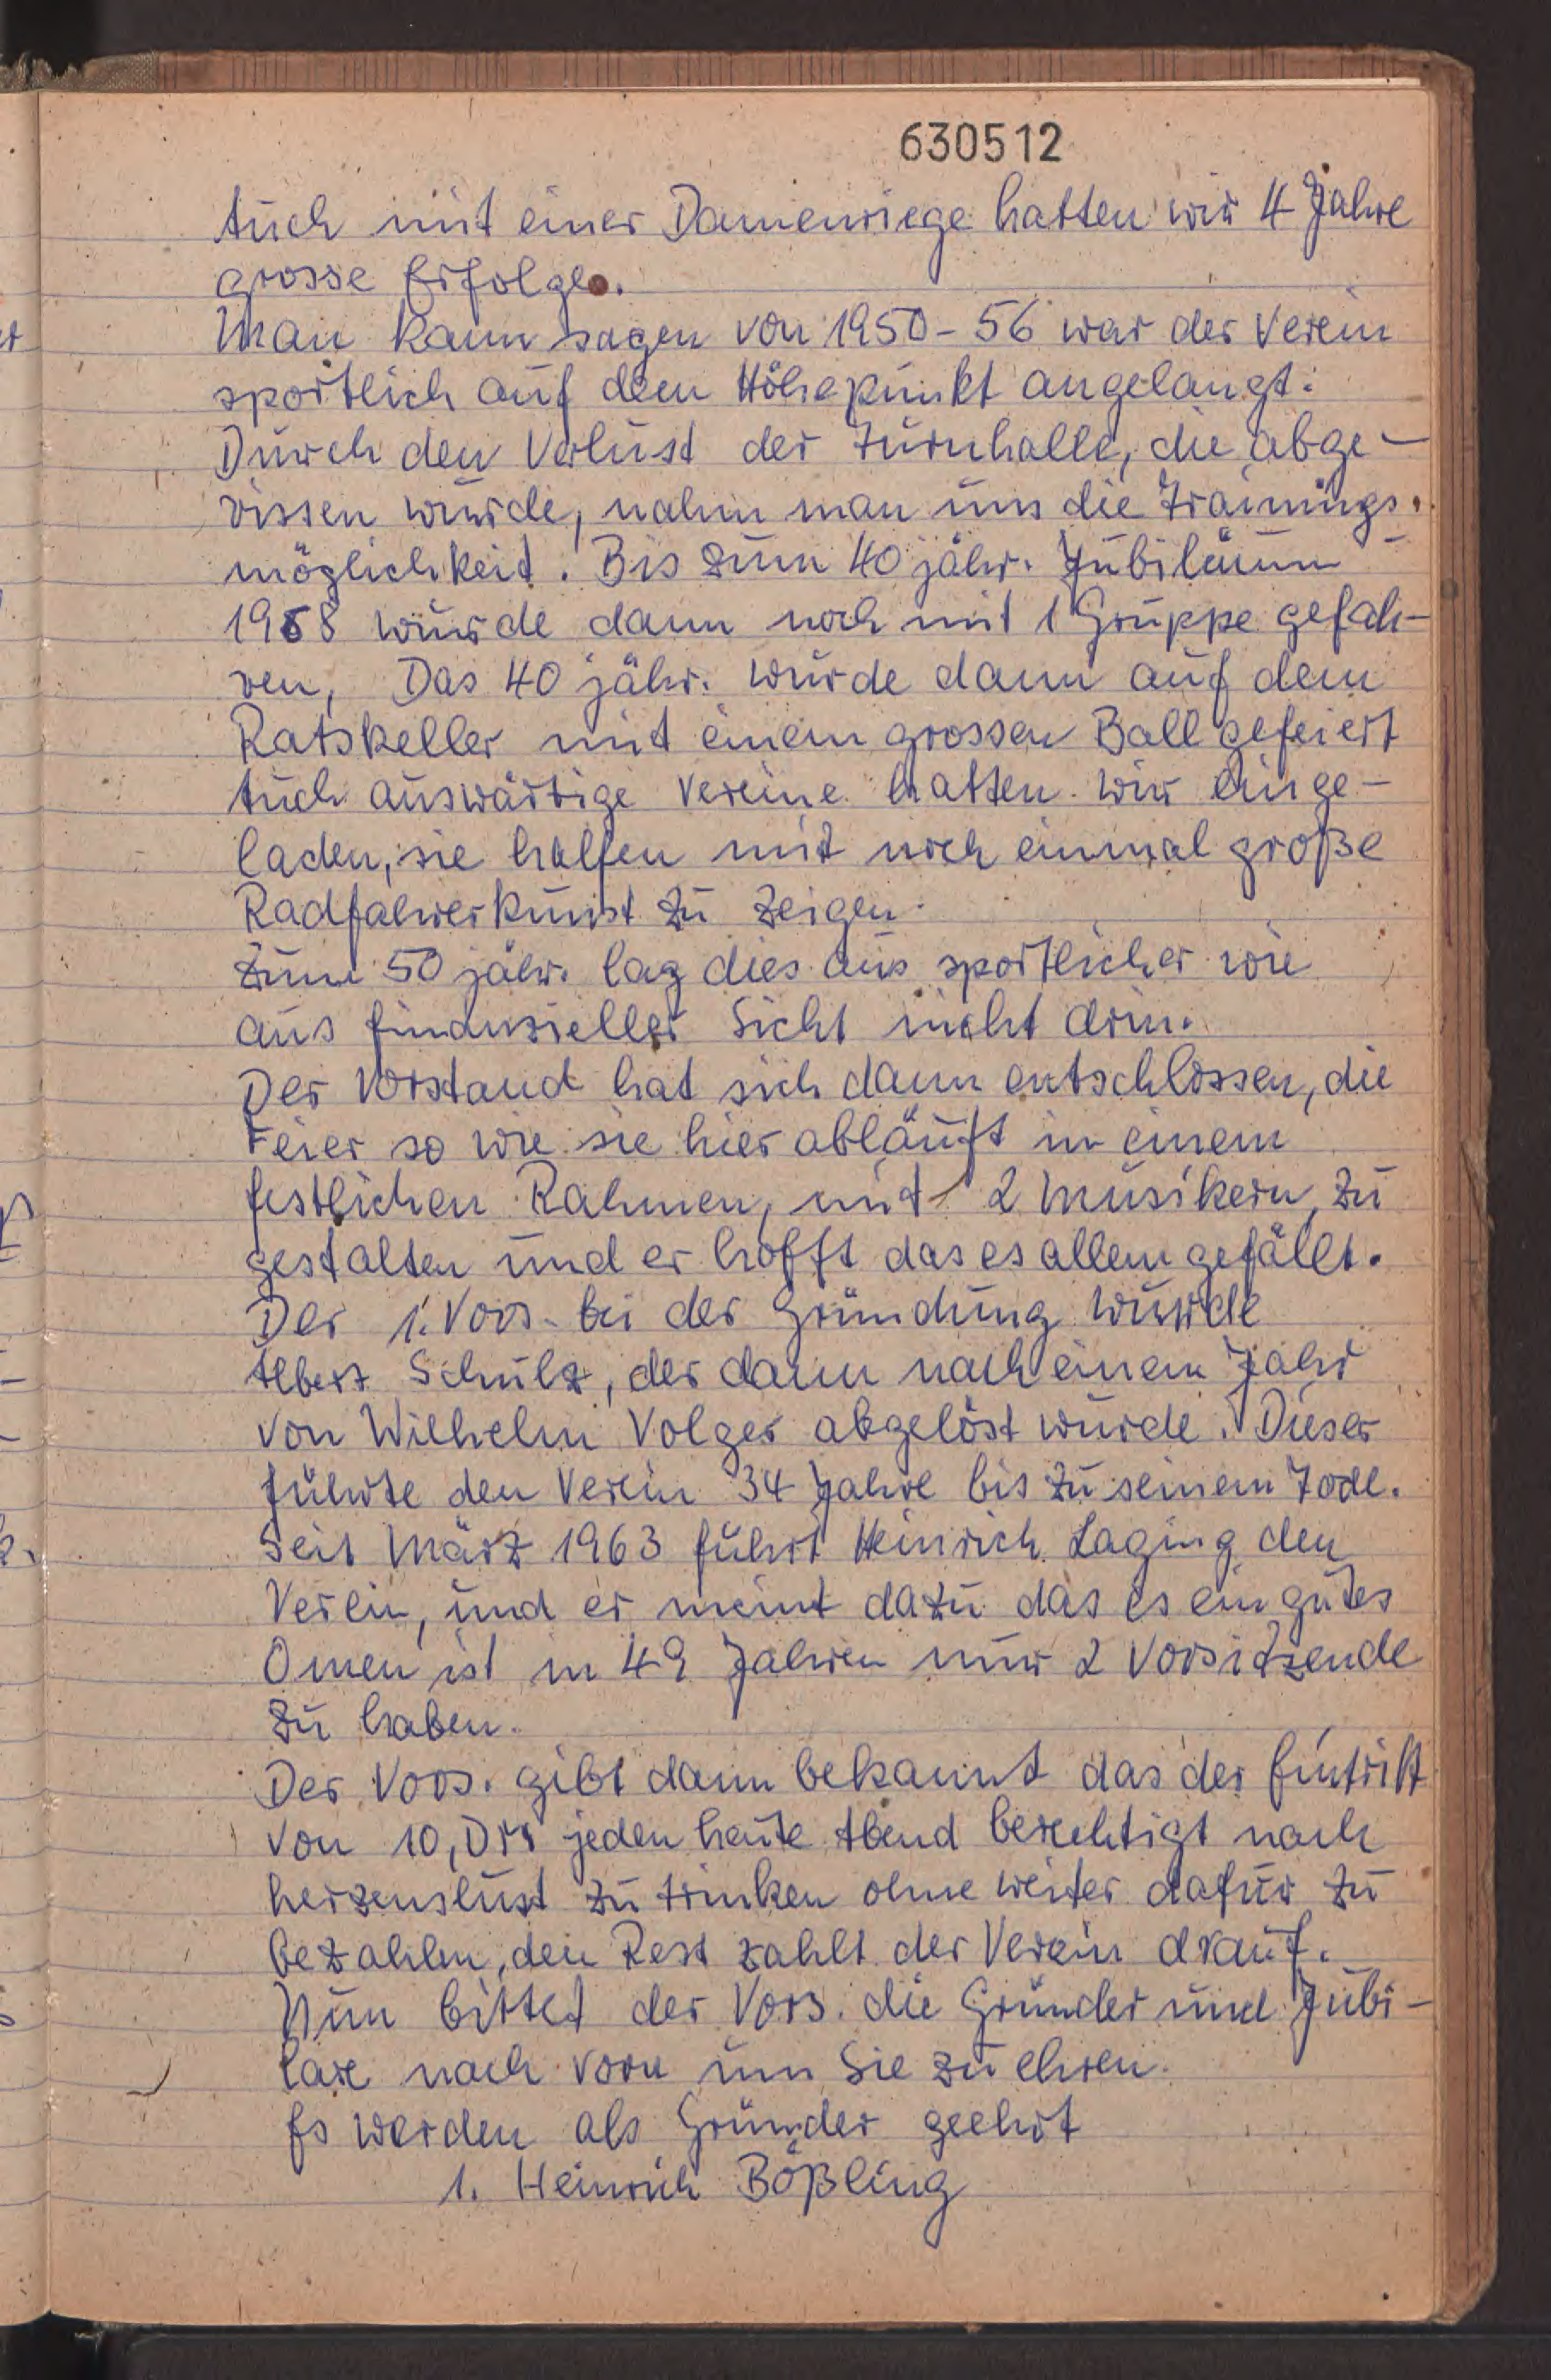 630512
Auch mit einer Damenriege hatten wir 4 Jahre
grosse Erfolge.
Man kann sagen von 1950-56 war der Verein
sportlich auf dem Höhepunkt angelangt.
Durch den Verlust der Turnhalle, die abge-
rissen wurde, nahm man uns die Trainings-
möglichkeit. Bis zum 40 jähr. Jubiläum
1958 wurde dann noch mit 1 Gruppe gefah-
ren, Das 40 jähr. wurde dann auf dem
Ratskeller mit einem grossen Ball gefeiert
Auch auswärtige Vereine hatten wir einge-
laden, sie halfen mit noch einmal große
Radfahrerkunst zu zeigen.
Zum 50 jähr. lag dies aus sportlicher wie
aus finanzieller Sicht nicht drin.
Der Vorstand hat sich dann entschlossen, die
Feier so wie sie hier abläuft in einem
festlichen Rahmen, mit 2 Musikern, zu
gestalten und er hofft das es allem gefällt.
Der 1. Vors. bei der Gründung wurde
Albert Schulz, der dann nach einem Jahr
von Wilhelm Volger abgelöst wurde. Dieser
führte den Verein 34 Jahre bis zu seinem Tode.
Seit März 1963 führt Heinrich Laging den
Verein, und er meint dazu das es ein gutes
Omen ist in 49 Jahren nur 2 Vorsitzende
zu haben.
Der Vors. gibt dann bekannt das der Eintritt
von 10,DM jeden heute Abend berechtigt nach
herzenslust zu trinken ohne weiter dafür zu
bezahlen, den Rest zahlt der Verein drauf.
Nun bittet der Vors. die Gründer und Jubi-
lare nach vorn um Sie zu ehren.
Es werden als Gründer geehrt
1. Heinrich Bößling